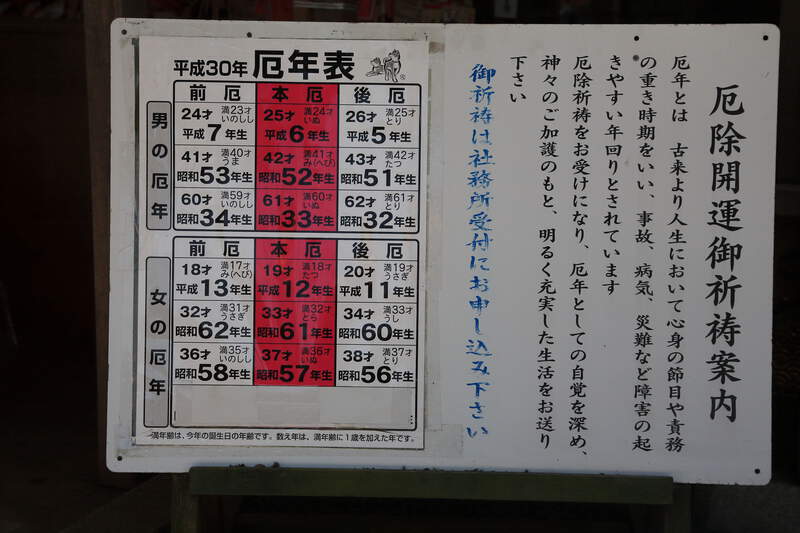 厄除開運御祈祷案内
厄年とは 古来より人生において心身の節目や責務
の重き時期をいい、事故、病気、災難など障害の起
きやすい年回りとされています
厄除祈祷をお受けになり、厄年としての自覚を深め、
神々のご加護のもと、明るく充実した生活をお送り
下さい
御祈祷は社務所受付にお申し込み下さい
平成30年 厄年表
男の厄年
前厄 本厄 後厄
24才 満23才 いのしし 25才 満24才 いぬ 26才 満25才 とり
平成7年生 平成6年生 平成5年生
41才 満40才 うま 42才 満41才 み(へび) 43才 満42才 たつ
昭和53年生 昭和52年生 昭和51年生
60才 満59才 いのしし 61才 満60才 いぬ 62才 満61才 とり
昭和34年生 昭和33年生 昭和32年生
女の厄年
前厄 本厄 後厄
18才 満17才 み(へび) 19才 満18才 たつ 20才 満19才 うさぎ
平成13年生 平成12年生 平成11年生
32才 満31才 うさぎ 33才 満32才 とら 34才 満33才 うし
昭和62年生 昭和61年生 昭和60年生
36才 満35才 いのしし 37才 満36才 いぬ 38才 満37才 とり
昭和58年生 昭和57年生 昭和56年生
満年齢は、今年の誕生日の年齢です。数え年は、満年齢に1歳を加えた年です。